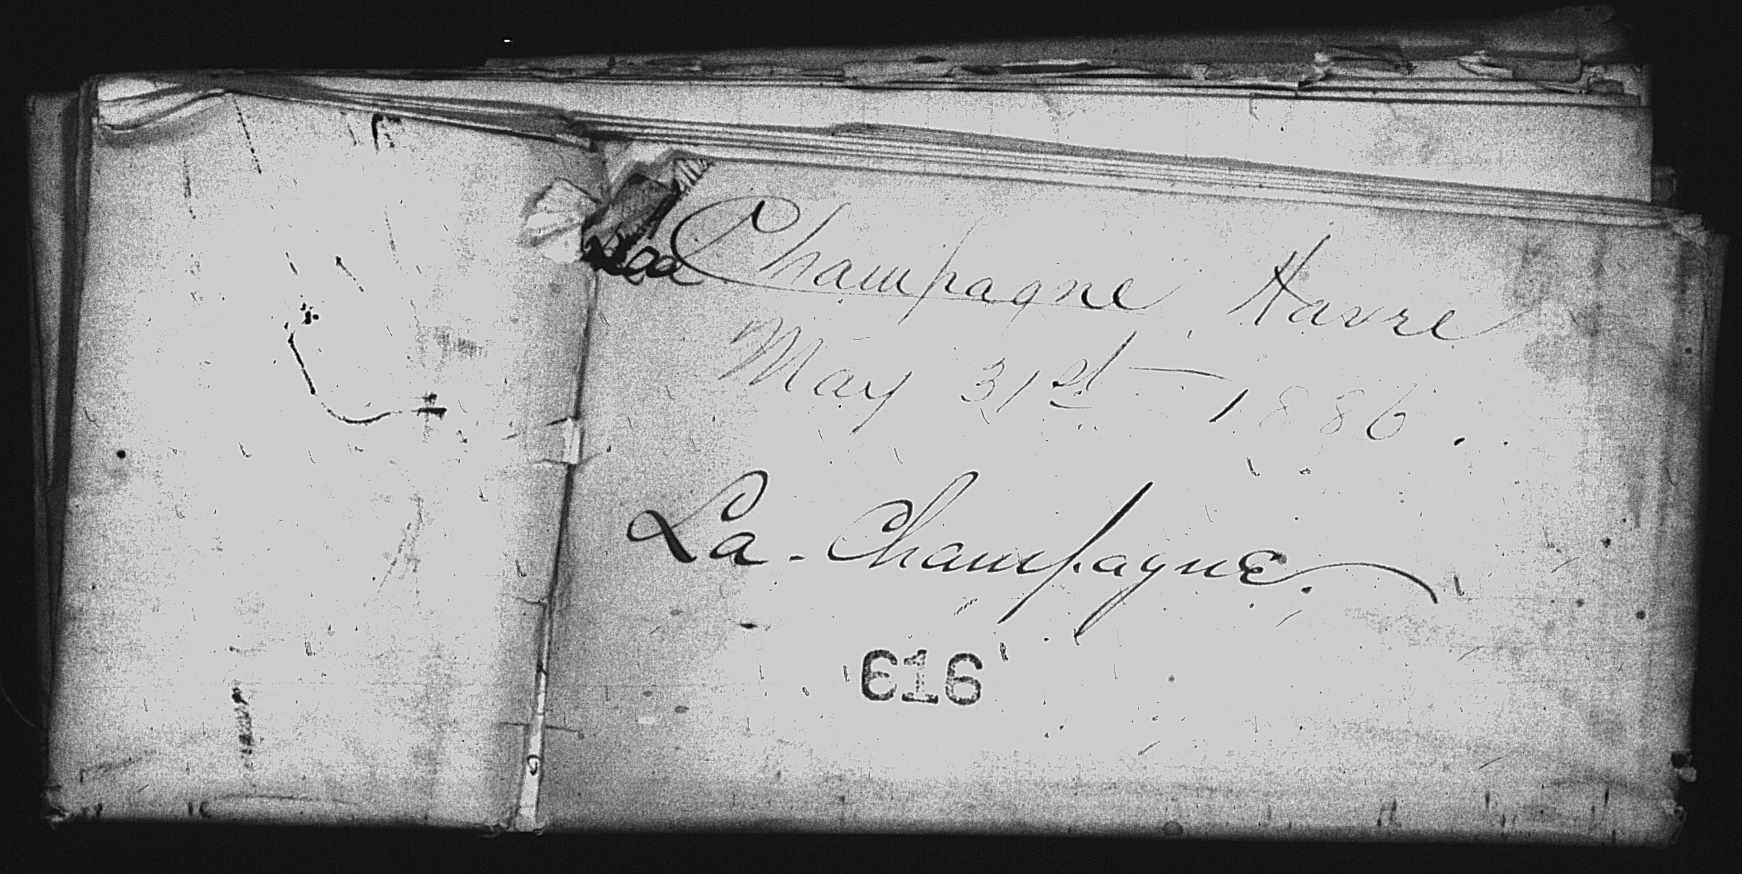 La Champagne, Havre
May 31st 1886.
La Champagne.
616